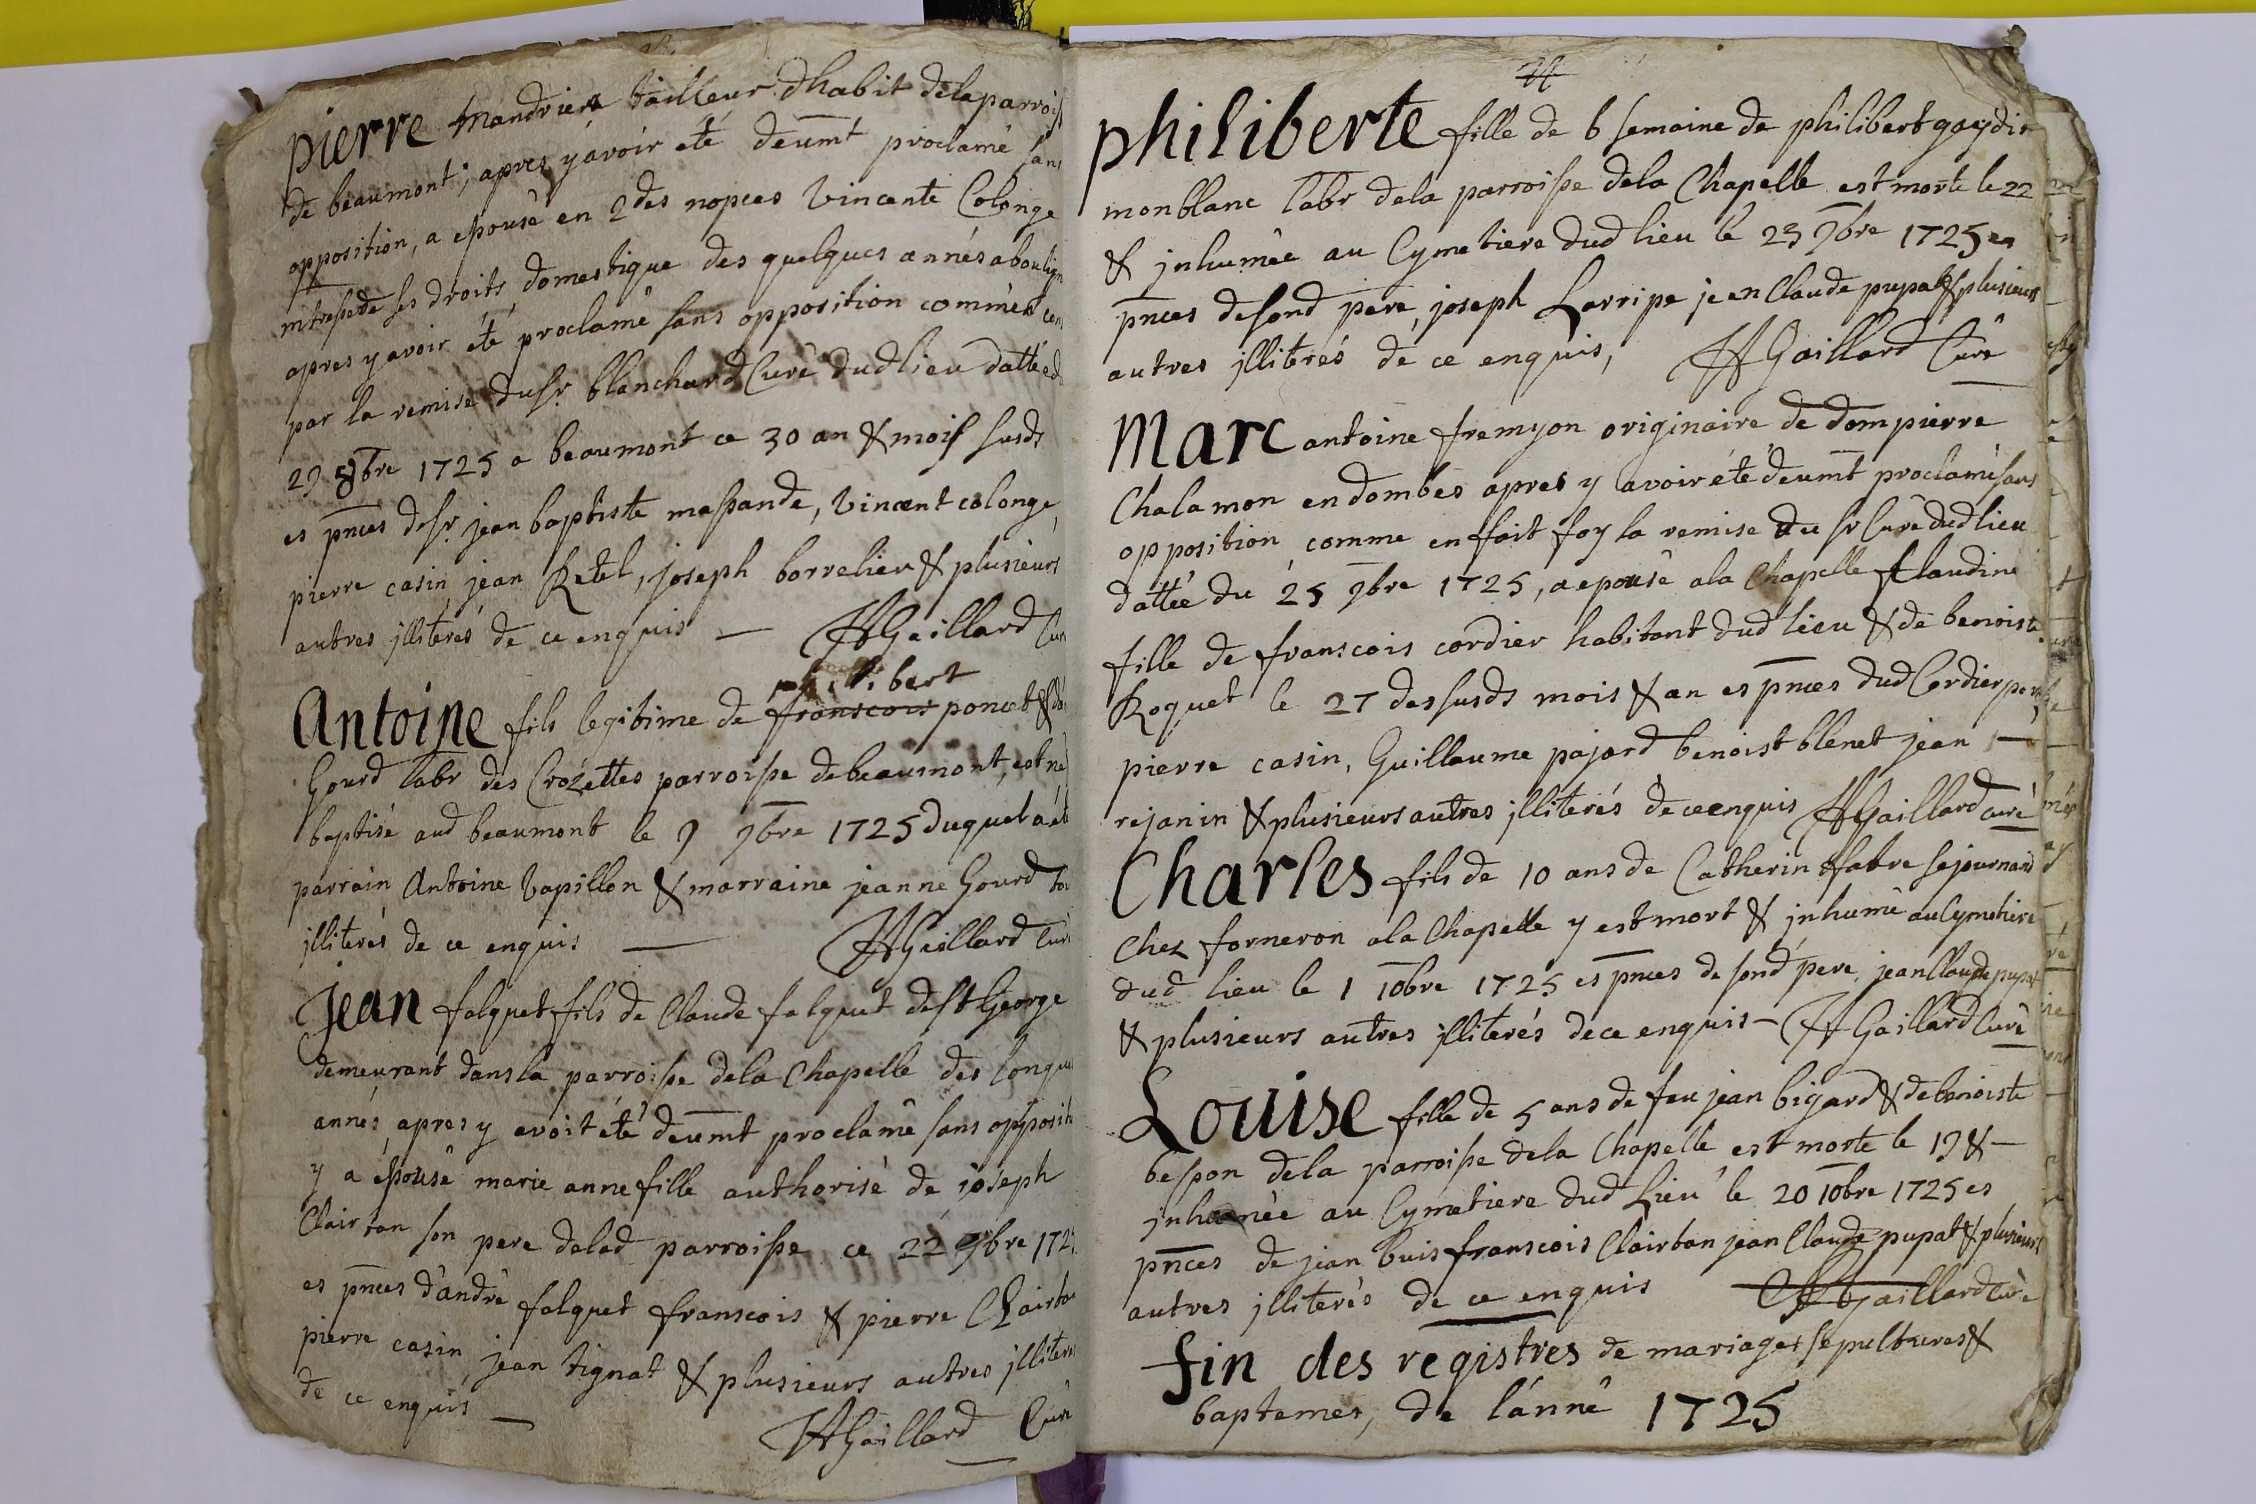 pierre mandriera tailleur dhabit dela parrois
de beaumont; apres y avoir eté deumt proclamé sans
opposition, a epousé en 2des nopces Vincente Colonge
mtresse de ses droits, domestique des quelques années a boulign
apres y avoir été proclamé sans opposition comme
par la remise du sr blanchard Curé dud lieu dattée d
29 8bre 1725 a beaumont ce 30 an & mois susds
es pnces de sr jean baptiste massande, Vincent colonge,
pierre casin, jean Retel, joseph borrelier & plusieurs
autres jlliterés de ce enquis — Gaillard Cur
philibert
Antoine fils legitime de franscois poncet &
Gourd labr des Crozettes parroisse de beaumont, est né
baptisé aud beaumont le 9 9bre 1725 duquel a ét
parrain Antoine Vapillon & marraine jeanne Gourd
jlliterés de ce enquis — Gaillard Curé
Jean falquet fils de Claude falquet de st George
demeurant dans la parroisse dela Chapelle des longue
annés, apres y avoit été deumt proclamé sans opposit
y a épousé marie anne fille authorisé de joseph
Clairton son pere delad parroisse ce 22 9bre 172
es pnces d'andré falquet franscois & pierre Clairton
pierre casin, jean tignat & plusieurs autres jlliteré
de ce enquis — Gaillard Curé
philiberte fille de 6 semaine de philibert gaydir
monblanc labr dela parroisse dela Chapelle est morte le 22
& jnhumée au Cymetiere dud lieu le 23 9bre 1725 es
pnces desond pere, joseph Larripe jean Claude pupat & plusieurs
autres jlliterés de ce enquis, Gaillard Curé
Marc antoine fremyon originaire de dompierre
Chalamon en dombes apres y avoir été deumt proclamé sans
opposition comme en fait foy la remise du sr Curé dud lieu
dattée du 25 9bre 1725, a epousé a la Chapelle Claudine
fille de franscois cordier habitant dud lieu & de benoiste
Roquet le 27 dessusds mois & an es pnces dud Cordier pere,
pierre casin, Guillaume pajard benoist blenet jean —
rejanin & plusieurs autres jlliterés de ce enquis Gaillard curé
Charles fils de 10 ans de Catherin fabre sejournand
chez forneron a la Chapelle y est mort & jnhumé au Cymetiere
dud lieu le 1 10bre 1725 es pnces de sond pere, jean Claude pupat
& plusieurs autres jlliterés de ce enquis — Gaillard Curé
Louise fille de 5 ans de feu jean bigard & de benoiste
besson dela parroisse dela Chapelle est morte le 19 & —
jnhumée au Cymetiere dud Lieu le 20 10bre 1725 es
pnces de jean buis franscois Clairton jean Claude pupat & plusieurs
autres jlliterés de ce enquis Gaillard Curé
fin des registres de mariages sepultures &
baptemes, de l'anné 1725